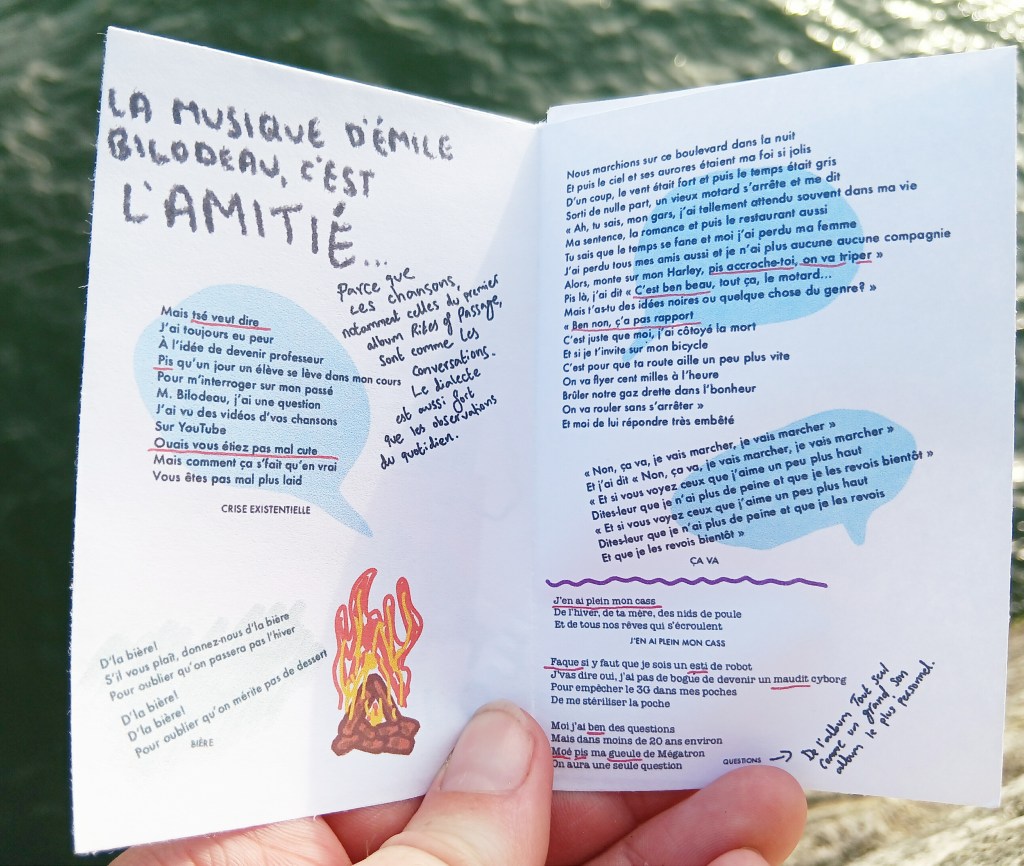 LA MUSIQUE D'ÉMILE
BILODEAU, C'EST
L'AMITIÉ...
Parce que
ces chansons,
notamment celles du premier
album Rites of Passage,
sont comme les
conversations.
Le dialecte
est aussi fort
que les observations
du quotidien.
Mais tsé veut dire
J'ai toujours eu peur
À l'idée de devenir professeur
Pis qu'un jour un élève se lève dans mon cours
Pour m'interroger sur mon passé
M. Bilodeau, j'ai une question
J'ai vu des vidéos d'vos chansons
Sur YouTube
Ouais vous étiez pas mal cute
Mais comment ça s'fait qu'en vrai
Vous êtes pas mal plus laid
CRISE EXISTENTIELLE
D'la bière!
S'il vous plaît, donnez-nous d'la bière
Pour oublier qu'on passera pas l'hiver
D'la bière!
D'la bière!
Pour oublier qu'on mérite pas de dessert
BIÈRE
Nous marchions sur ce boulevard dans la nuit
Et puis le ciel et ses aurores étaient ma foi si jolis
D'un coup, le vent était fort et puis le temps était gris
Sorti de nulle part, un vieux motard s'arrête et me dit
« Ah, tu sais, mon gars, j'ai tellement attendu souvent dans ma vie
Ma sentence, la romance et puis le restaurant aussi
Tu sais que le temps se fane et moi j'ai perdu ma femme
J'ai perdu tous mes amis aussi et je n'ai plus aucune aucune compagnie
Alors, monte sur mon Harley, pis accroche-toi, on va triper »
Pis là, j'ai dit « C'est ben beau, tout ça, le motard...
Mais t'as-tu des idées noires ou quelque chose du genre? »
« Ben non, ç'a pas rapport
C'est juste que moi, j'ai côtoyé la mort
Et si je t'invite sur mon bicycle
C'est pour que ta route aille un peu plus vite
On va flyer cent milles à l'heure
Brûler notre gaz drette dans l'bonheur
On va rouler sans s'arrêter »
Et moi de lui répondre très embêté
« Non, ça va, je vais marcher, je vais marcher »
Et j'ai dit « Non, ça va, je vais marcher, je vais marcher »
« Et si vous voyez ceux que j'aime un peu plus haut
Dites-leur que je n'ai plus de peine et que je les revois bientôt »
« Et si vous voyez ceux que j'aime un peu plus haut
Dites-leur que je n'ai plus de peine et que je les revois
Et que je les revois bientôt »
ÇA VA
J'en ai plein mon cass
De l'hiver, de ta mère, des nids de poule
Et de tous nos rêves qui s'écroulent
J'EN AI PLEIN MON CASS
Faque si y faut que je sois un esti de robot
J'vas dire oui, j'ai pas de bogue de devenir un maudit cyborg
Pour empêcher le 3G dans mes poches
De me stériliser la poche
Moi j'ai ben des questions
Mais dans moins de 20 ans environ
Moé pis ma gueule de Mégatron
On aura une seule question
QUESTIONS →
De l'album Tout seul
comme un grand son
album le plus personnel.